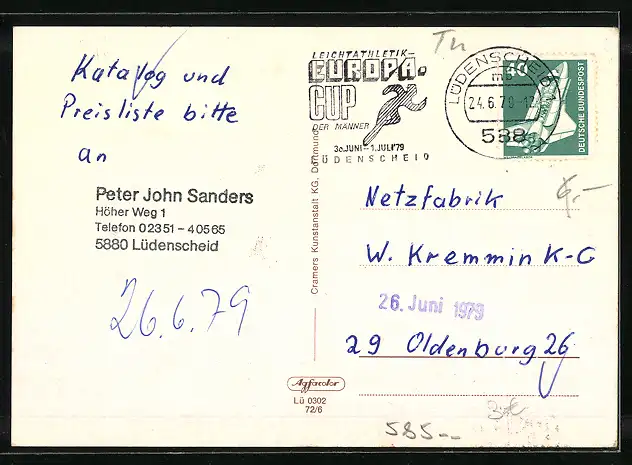 Katalog und
Preisliste bitte
an
Peter John Sanders
Höher Weg 1
Telefon 02351 - 40565
5880 Lüdenscheid
26.6.79
Cramers Kunstanstalt KG, Dortmund
Agfacolor
Lü 0302
72/6
LEICHTATHLETIK-
EUROPA-
CUP
DER MÄNNER
30.JUNI-1.JULI'79
LÜDENSCHEID
LÜDENSCHEID 1
mb
24.6.79-12
588
DEUTSCHE BUNDESPOST
Netzfabrik
W. Kremmin K-G
26. Juni 1979
29 Oldenburg 26
585--